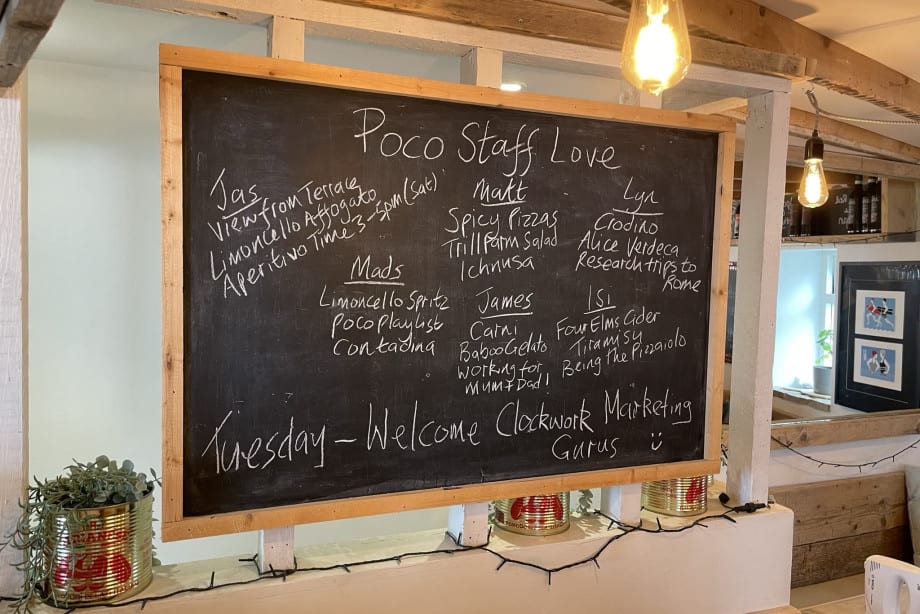 Poco Staff Love
Jas
View from Terrace
Limoncello Affogato
Aperitivo Time 3-5pm (Sat)
Matt
Spicy Pizzas
Trill Farm Salad
Ichnusa
Lyn
Crodino
Alice Verdeca
Research trips to
Rome
Mads
Limoncello Spritz
Poco Playlist
Contadina
James
Carni
Baboo Gelato
Working for
Mum + Dad!
ISi
Four Elms Cider
Tiramisu
Being the Pizzaiolo
Tuesday - Welcome Clockwork Marketing
Gurus